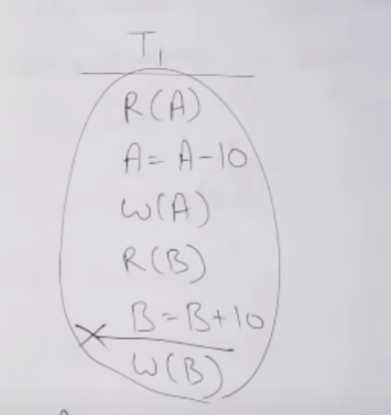 T1
R(A)
A = A-10
W(A)
R(B)
B = B+10
W(B)